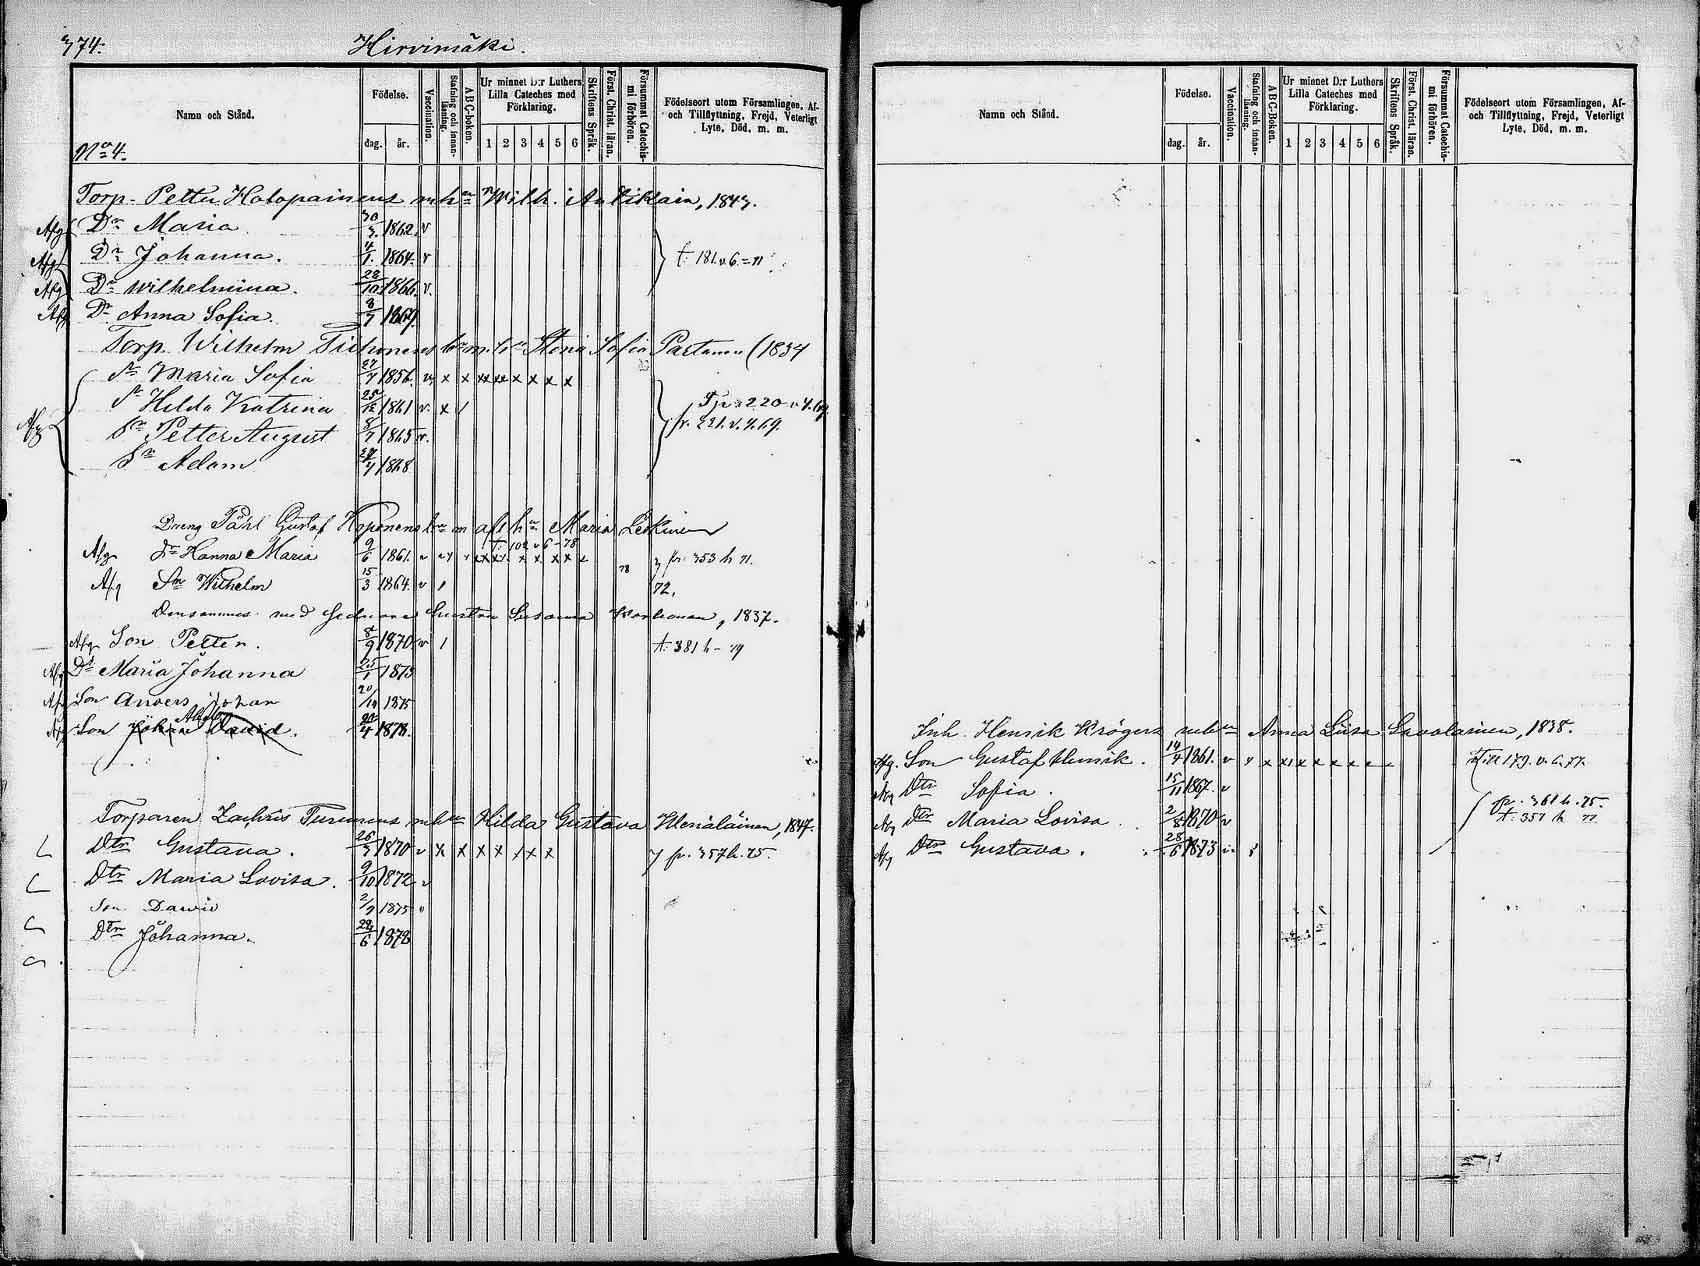 374.
Hirvimäki.
Namn och Stånd.
Födelse.
dag.
år.
Vaccination.
Stafning och innanläsning.
ABC-boken.
Ur minnet D:r Luthers Lilla Cateches med Förklaring.
1 2 3 4 5 6
Skriftens Språk.
Först. Christ. läran.
Försummat Catechismi förhören.
Födelseort utom Församlingen, Af- och Tillflyttning, Frejd, Veterligt Lyte, Död, m. m.
No 4.
Torp. Petter Holopainens m hu Wilh. Antikain, 1843.
Afg Dr Maria 30/3 1862. v
Afg Dr Johanna. 4/1 1864. v t. 181 v. 6 = 71
Afg Dr Wilhelmina. 28/10 1866. v.
Afg Dr Anna Sofia. 8/7 1869.
Torp. Wilhelm Tiihonens bn m. hu Stina Sofia Partanen (1834
Dr Maria Sofia 27/7 1856. v x x xx xx x x x x
Dr Hilda Katrina 25/12 1861 v. x / 220 v 4. 69
Afg Sn Petter August 8/7 1865 v. fr. 221. v. 4. 69.
Sn Adam 1868
Dreng Påhl Gustaf Koponens bn m afl hu Maria Leskinen
t. 102 v 6 - 78
Afg Dr Hanna Maria 9/6 1861. v fr. 353 h 71.
78
Afg Sn Wilhelm 15/3 1864. v / 72.
Densammes med sednare hustru Susanna Korhonen, 1837.
Afg Son Petter. 8/9 1870 v / t. 381 h - 79
Afg Dr Maria Johanna 25/1 1873
Afg Son Anders Johan 20/10 1875
Afg Son Johan David. Abel 4 1878.
Torparen Zachris Turunens m hu Hilda Gustava Heinäläinen, 1847.
Dtr Gustava. 26/3 1870 v x x x x / x x fr. 357 h. 75.
Dtr Maria Lovisa. 9/10 1872 v
Son David 2/7 1875 v
Dtr Johanna. 6 1878
Namn och Stånd.
Födelse.
dag.
år.
Vaccination.
Stafning och innanläsning.
ABC-Boken.
Ur minnet D:r Luthers Lilla Cateches med Förklaring.
1 2 3 4 5 6
Skriftens Språk.
Först. Christ. läran.
Försummat Catechismi förhören.
Födelseort utom Församlingen, Af- och Tillflyttning, Frejd, Veterligt Lyte, Död, m. m.
Inh. Henrik Krögers m hu Anna Liisa Savolainen, 1838.
Afg. Son Gustaf Henrik. 14/4 1861. v till 179. v. 6. 77.
Afg Dtr Sofia. 15/11 1867. v
Afg Dtr Maria Lovisa. 2/8 1870 v fr. 361 h. 75. t. 351 h 77
Afg Dtr Gustava. 28/6 1873 v